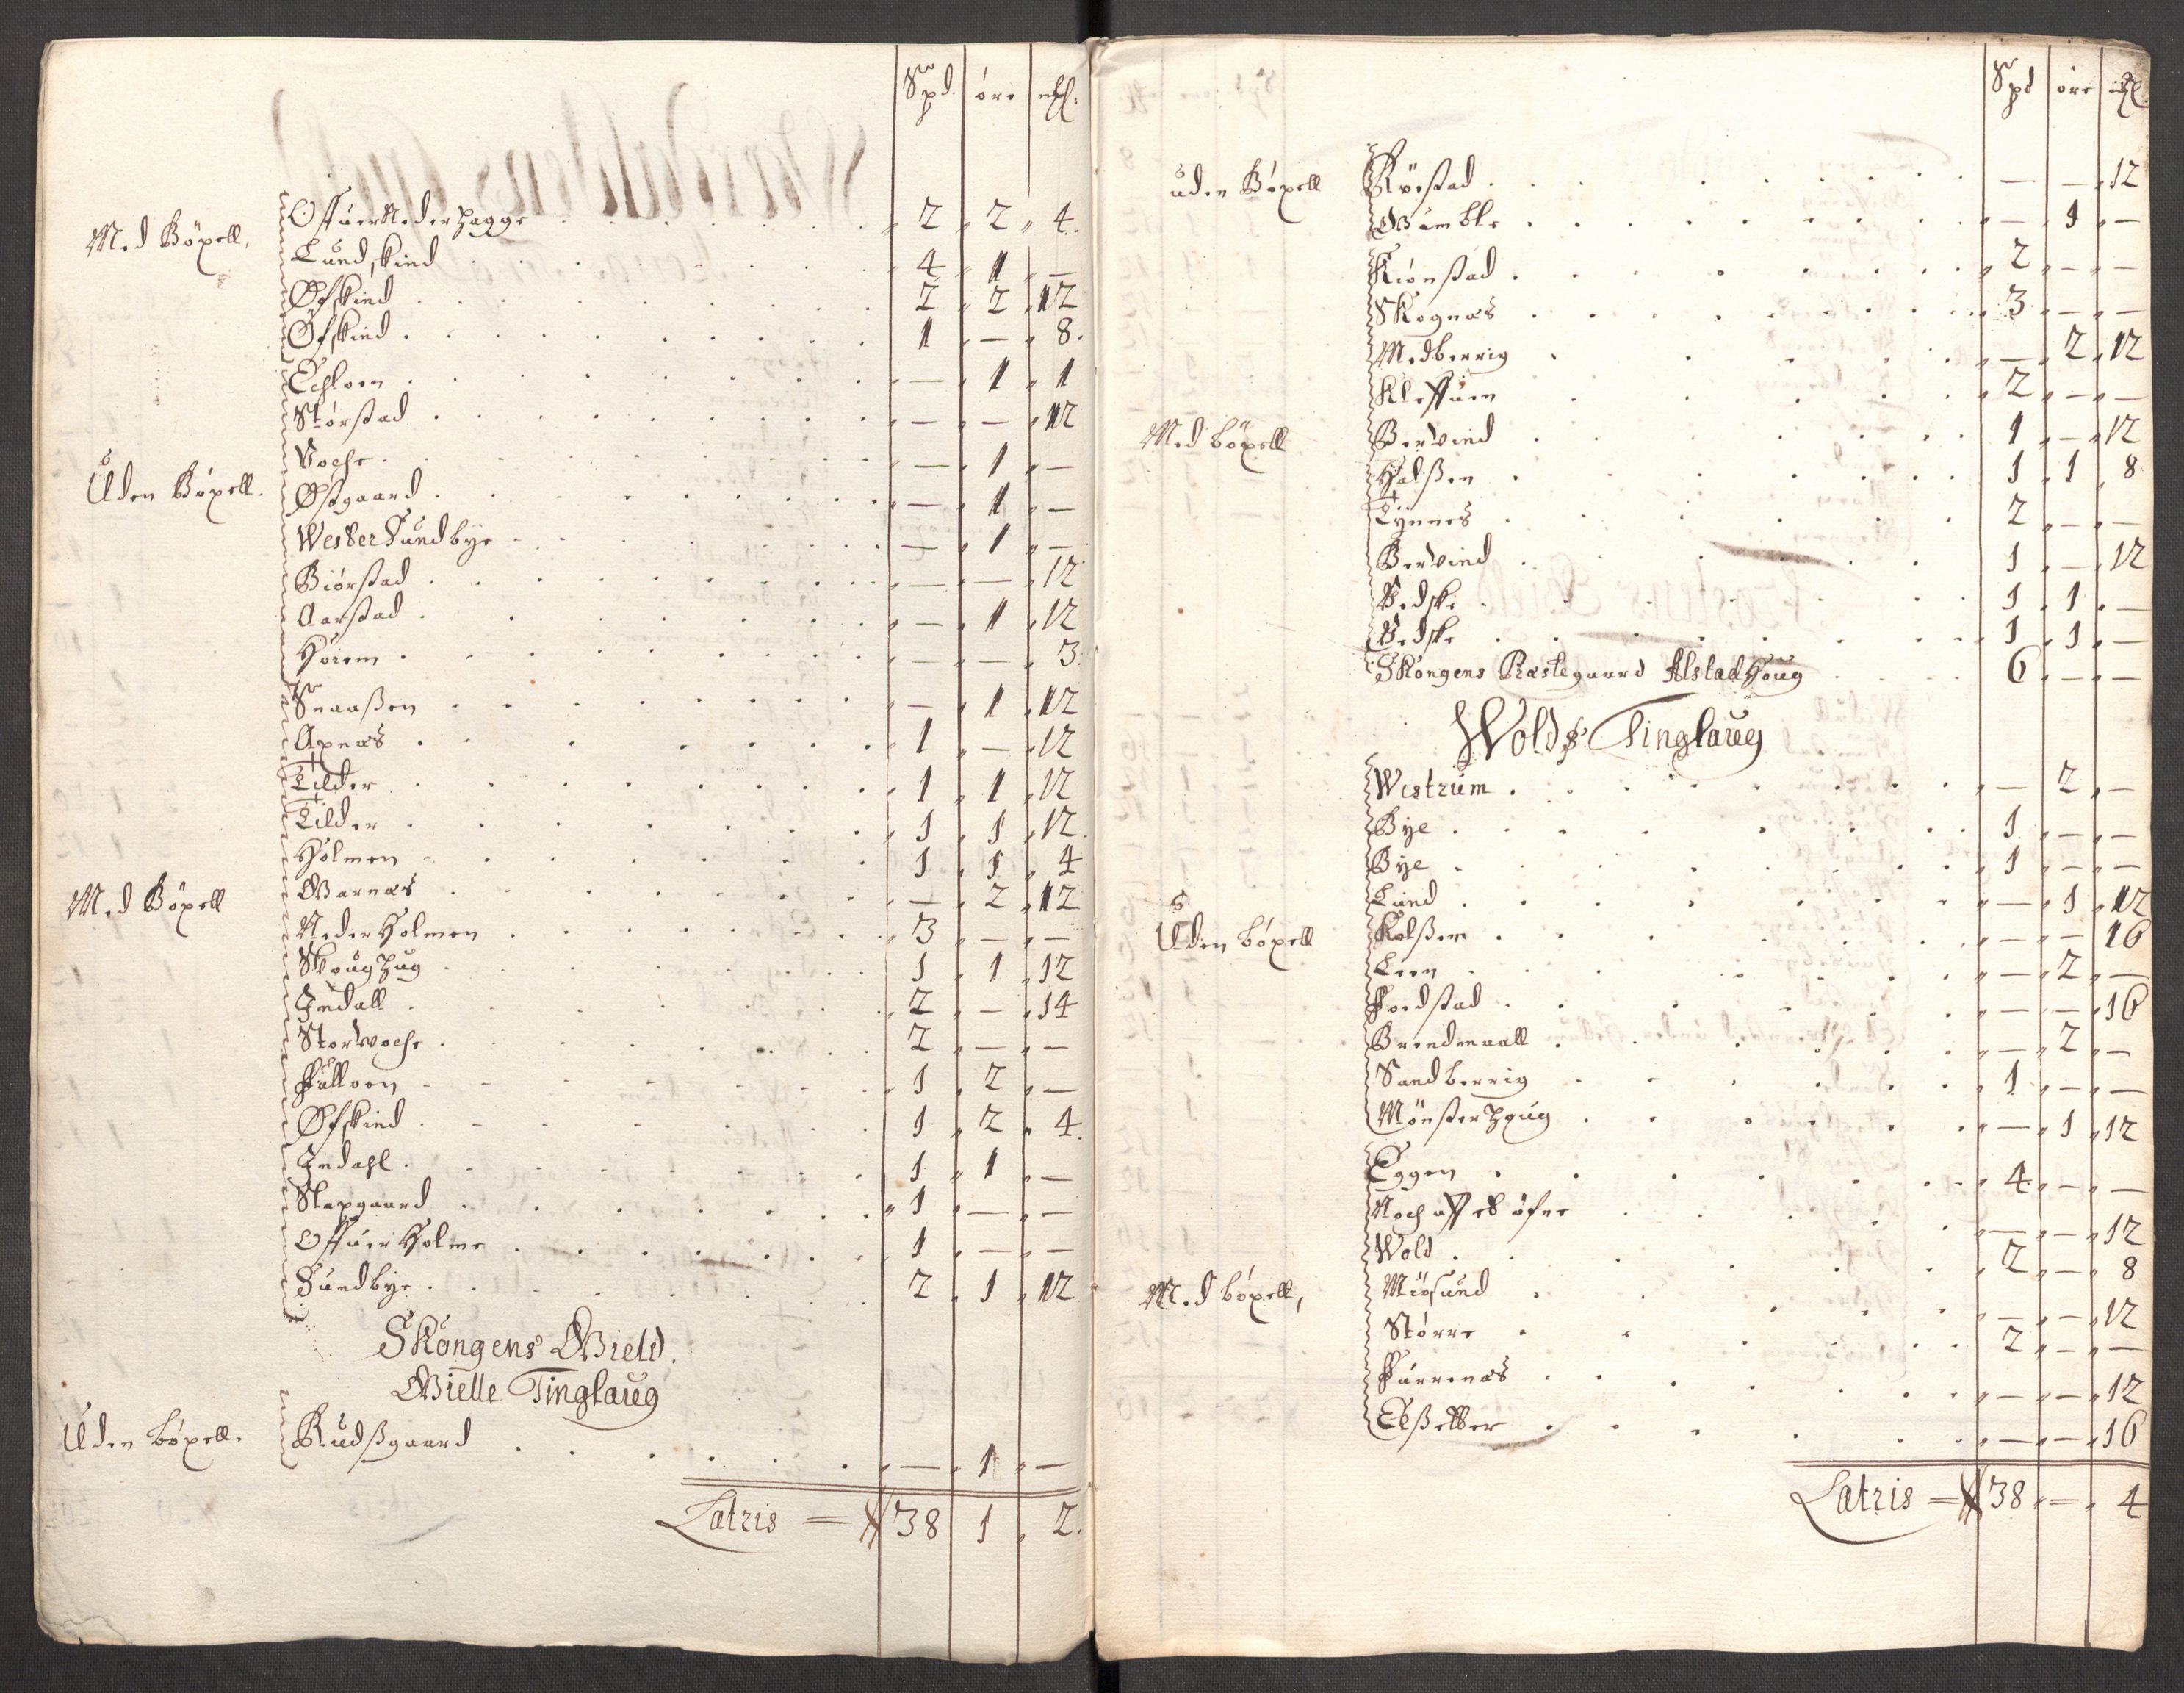 Spd. øre mkl.
Med Böxell.
Offuer Neder Hagge 2 2 4.
Lundskind 4 1 —
Øfskind 2 2 12
Øfskind 1 — 8.
Echloen — 1 1
Størstad — — 12
Voche — 1 —
Uden Böxell.
Østgaard — 1 —
Wester Sundbye — 1 —
Biørstad — — 12
Aarstad — 1 12
Hørem — — 3.
Snaaßen — 1 12
Axnæs 1 — 12
Tilder 1 1 12
Tilder 1 1 12.
Holmen 1 1 4
Med Böxell
Warnæs — 2 12
Neder Holmen 3 — —
Skoug Hug 1 1 12
Indall 2 — 14
Storvoche 2 — —
Fulloen 1 2 —
Øfskind 1 2 4.
Indahl 1 1 —
Slapgaard 1 — —
Offuer Holme 1 — —
Sundbye 2 1 12
Skongens Gield.
Gielle Tinglaug
Uden böxell.
Rudßgaard — 1 —
Latris = 38 1 2.
Spd øre mkl.
uden Böxell
Røestad — — 12
Gimble — 1 —
Kiønstad 2 — —
Skognæs 3 — —
Medberrig — 2 12
Kleffuen 2 — —
Med böxell
Bervind 1 — 12
Halßen 1 1 8
Tynnes 2 — —
Bervind 1 — 12
Vedske 1 1 —
Vedske 1 1 —
Skongens Præstegaard Alstadhoug 6 — —
Wolds Tinglaug
Westrum — 2 —
Bye 1 — —
Bye 1 — —
Lund — 1 12
Uden böxell
Kolßen — — 16
Leen — 2 —
Foedstad — — 16
Brendmaall — 2 —
Sandberrig 1 — —
Mønsterhoug — 1 12
Eggen 4 — —
Noch aff — 12
Wold 2 — 8
Med böxell,
Miösund — — 12
Større 2 — —
Furrenæs — — 12
Elßetter — — 16
Latris = 38 — 4